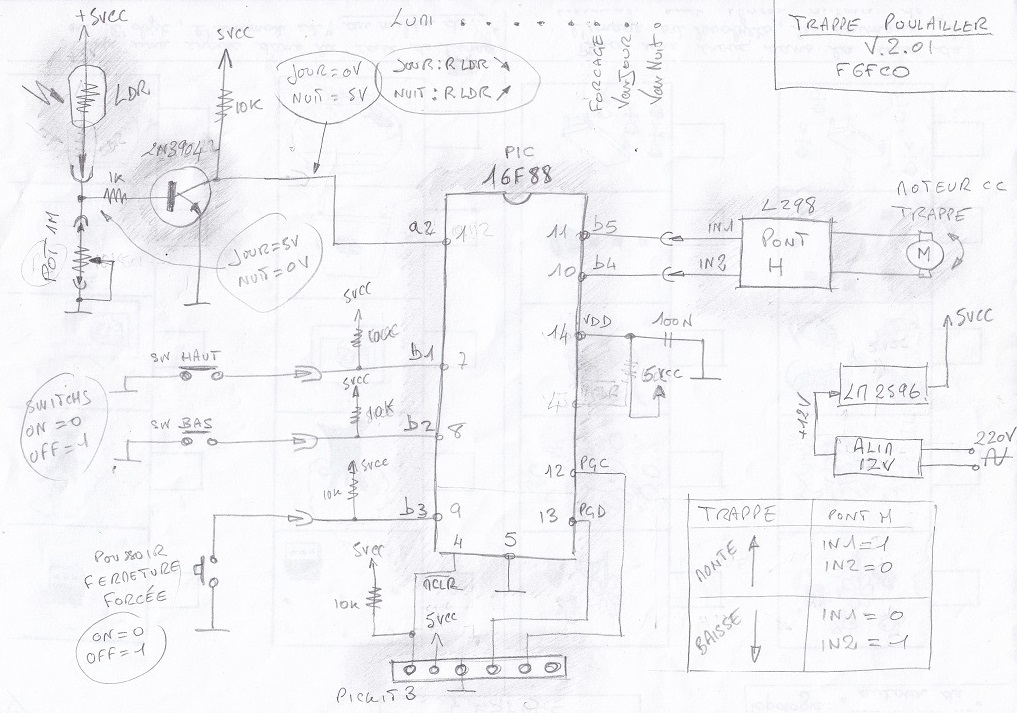 +5VCC
LDR
5VCC
10K
2N3904
1K
POT 1M
JOUR = 0V
NUIT = 5V
JOUR : R LDR ↘
NUIT : R LDR ↗
JOUR = 5V
NUIT = 0V
FORCAGE
VanJour
VanNuit
TRAPPE POULAILLER
V.2.01
F6FCO
PIC
16F88
a2
b5
11
b4
10
IN1
IN2
L298
PONT
H
MOTEUR CC
TRAPPE
M
VDD
14
100N
5VCC
5VCC
SW HAUT
b1
7
5VCC
10K
SW BAS
b2
8
SWITCHS
ON = 0
OFF = 1
5VCC
10K
b3
9
POUSSOIR
FERMETURE
FORCÉE
ON = 0
OFF = 1
12
PGC
13
PGD
4
5
MCLR
5VCC
10K
5VCC
PICKIT 3
5VCC
LM2596
+12V
ALIM
12V
220V
TRAPPE
PONT H
MONTE
IN1 = 1
IN2 = 0
BAISSE
IN1 = 0
IN2 = 1